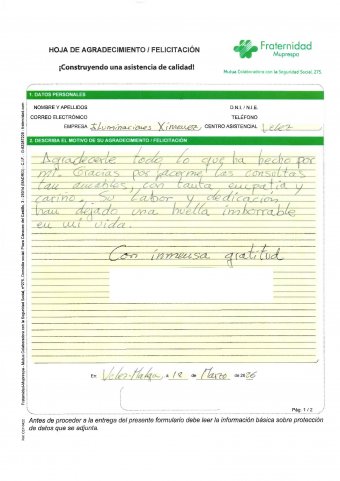 HOJA DE AGRADECIMIENTO / FELICITACIÓN
¡Construyendo una asistencia de calidad!
Fraternidad
Muprespa
Mutua Colaboradora con la Seguridad Social, 275
1. DATOS PERSONALES
NOMBRE Y APELLIDOS D.N.I. / N.I.E.
CORREO ELECTRÓNICO TELÉFONO
EMPRESA Iluminaciones Ximenez CENTRO ASISTENCIAL Velez
2. DESCRIBA EL MOTIVO DE SU AGRADECIMIENTO / FELICITACIÓN
Agradecerle todo lo que ha hecho por
mi. Gracias por hacerme las consultas
tan amables, con tanta empatía y
cariño. Su labor y dedicación
han dejado una huella imborrable
en mi vida.
Con inmensa gratitud
En Velez-Malaga a 12 de Marzo de 2026
Pág. 1 / 2
Antes de proceder a la entrega del presente formulario debe leer la información básica sobre protección
de datos que se adjunta.